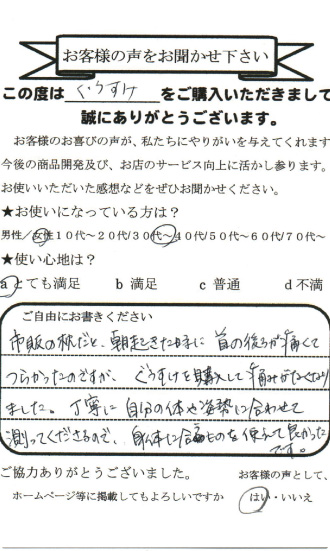 お客様の声をお聞かせ下さい
この度は ぐうすけ をご購入いただきまして
誠にありがとうございます。
お客様のお喜びの声が、私たちにやりがいを与えてくれます
今後の商品開発及び、お店のサービス向上に活かし参ります。
お使いいただいた感想などをぜひお聞かせください。
★お使いになっている方は?
男性/女性10代~20代/30代~40代/50代~60代/70代~
★使い心地は?
aとても満足 b 満足 c 普通 d不満
ご自由にお書きください
市販の枕だと、朝起きた時に 首の後ろが痛くて
つらかったのですが、ぐうすけを購入して痛みがなくなり
ました。丁寧に 自分の体や姿勢に合わせて
測ってくださるので、自分に合ものを使えて良かった
です。
ご協力ありがとうございました。 お客様の声として、
ホームページ等に掲載してもよろしいですか はい・いいえ